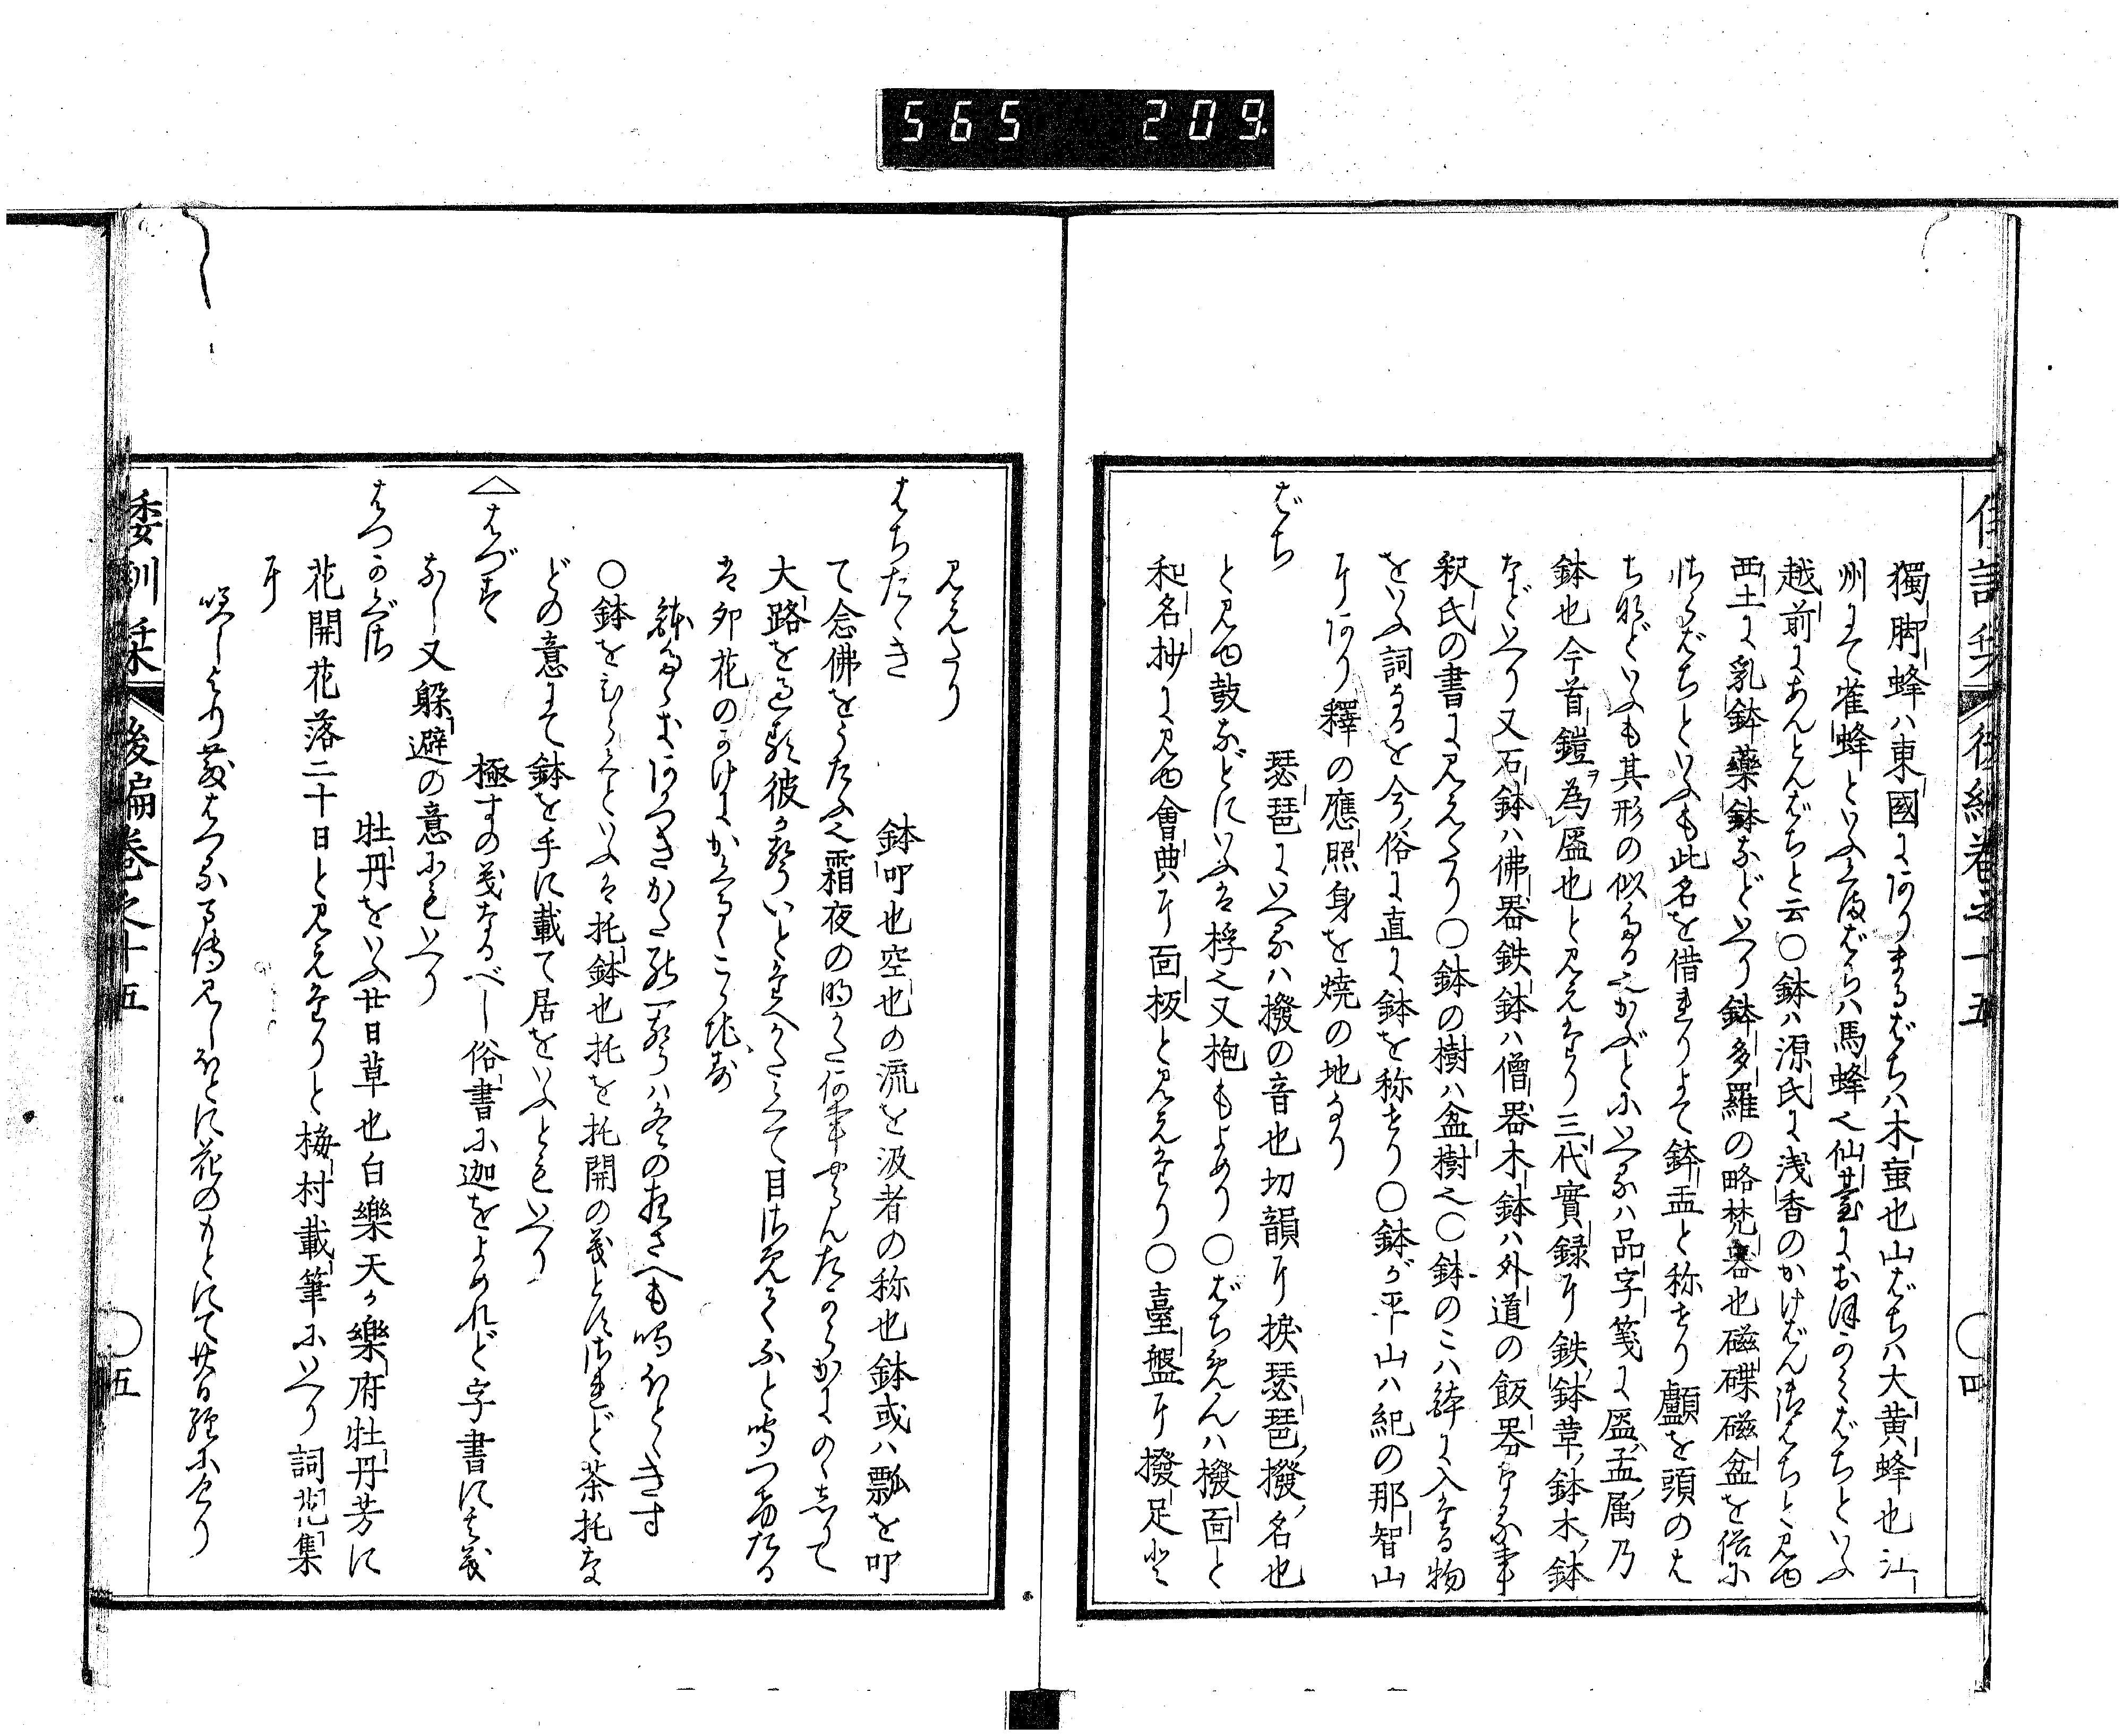 565 209
倭訓栞 後編巻之十五 〇四
獨脚蜂ハ東國にありまるばちハ木蜜也山ばちハ大黄蜂也江
州にて雀蜂といふ
越前にあんどんばちと云〇鉢ハ源氏に浅香のかけばん
西土に乳鉢藥鉢などいへり鉢多羅の略梵器也磁磲磁盆を俗に
ばちといふも此名を借れりよて鉢盂と称せり顱を頭のは
ちなどいふも其形の似たる也かぶとにいへるハ品字箋に盔盂属乃
鉢也今首鎧為盔也と見えたり三代實録に鉄鉢革鉢木鉢
などいへり又石鉢ハ佛器鉄鉢ハ僧器木鉢ハ外道の飯器なる事
釈氏の書に見えたり〇鉢の樹ハ盆樹也〇鉢のこハ鉢に入たる物
をいふ詞なるを今俗に直に鉢を称せり〇鉢が平山ハ紀の那智山
にあり釋の應照身を焼の地なり
ばち 琵琶にいへるハ撥の音也切韻に捩琵琶撥名也
と見ゆ鼓などにいふは桴也又枹もよめり〇ばちめんハ撥面と
和名抄に見ゆ會典に面板と見えたり〇臺盤に撥足と
見えたり
はちたゝき 鉢叩也空也の流を汲者の称也鉢或ハ瓢を叩
て念佛をうたふ也霜夜の明かた何事やらんたからかにのゝしりて
大路を過る彼が聲いとたへかたくて目さめてふと聞つけたる
は卯花のかけにかくるゝこゝちす
〇鉢をひらくといふは托鉢也托を托開の義といへれど茶托な
どの意にて鉢を手に載て居をいふともいへり
△はづす 極すの義なるべし俗書に迦をよめれど字書に其義
なし又躱避の意にもいへり
はつかぐさ 牡丹をいふ廿日草也白樂天が樂府牡丹芳に
花開花落二十日と見えたりと梅村載筆にいへり詞花集
に
咲しより散はつるまで見しほどに花のもとにて廿日經にけり
倭訓栞 後編巻之十五 〇五